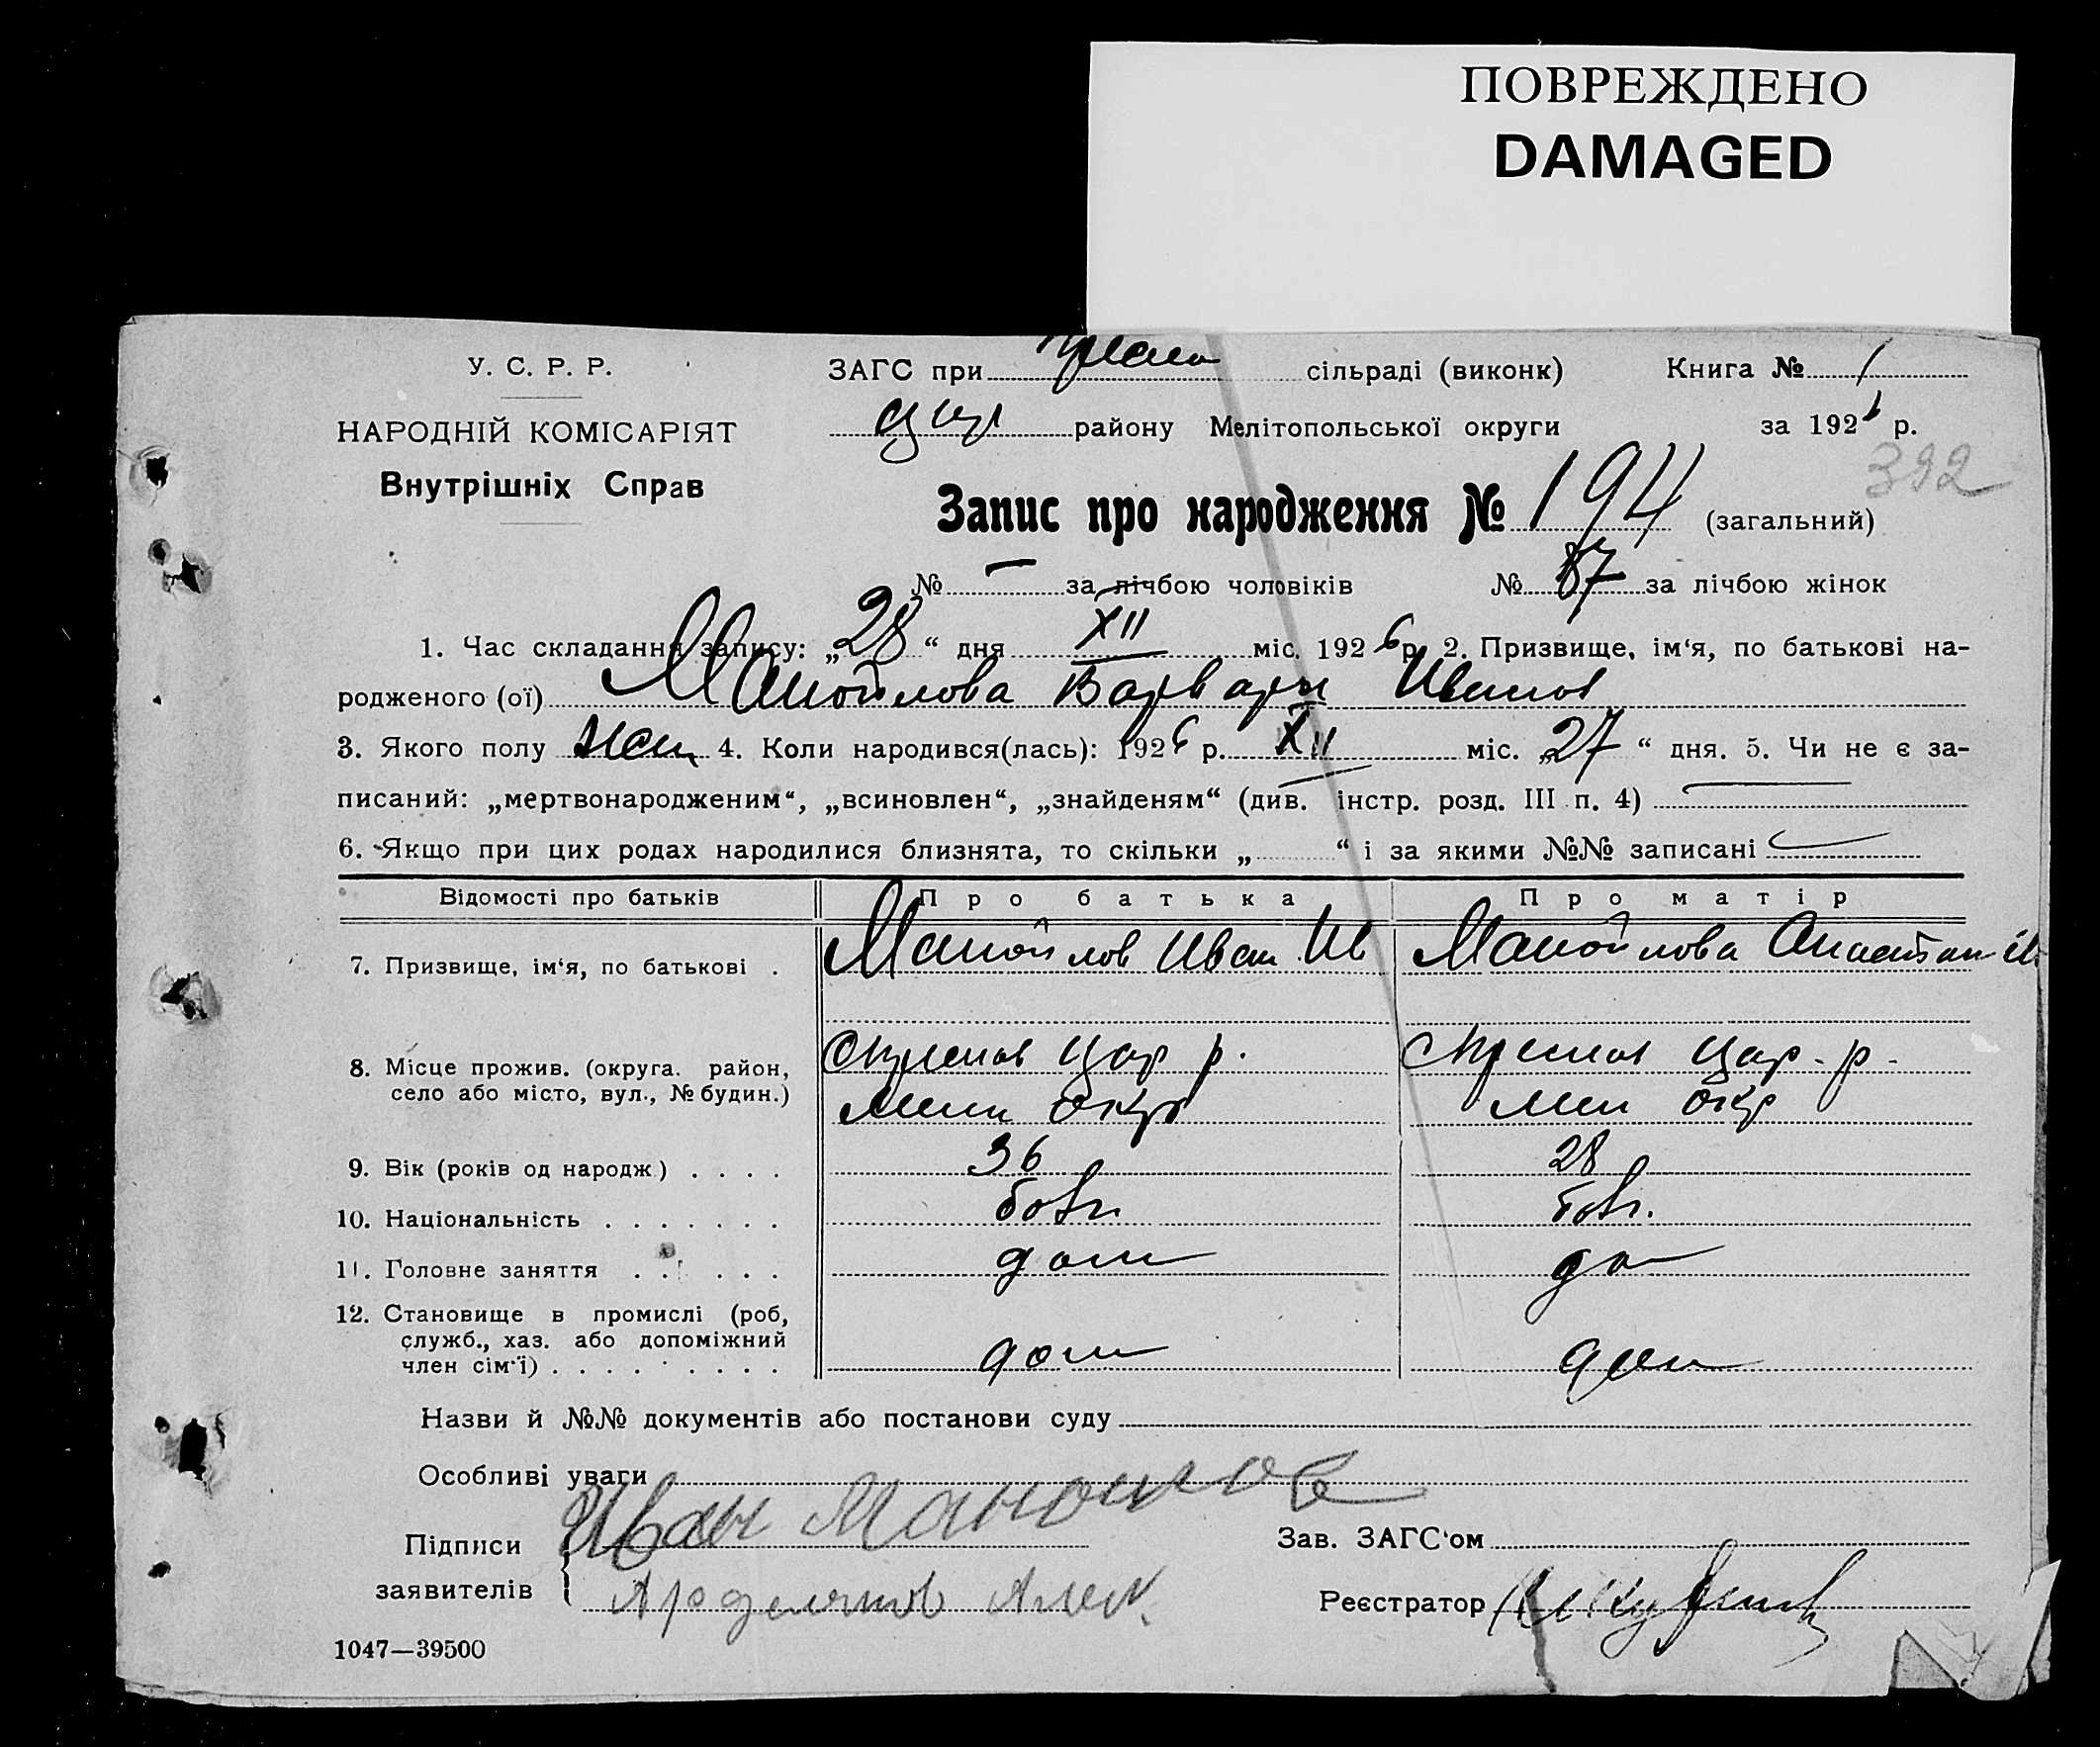 ПОВРЕЖДЕНО
DAMAGED
У. С. Р. Р.
ЗАГС при сільраді (виконк)
Книга № 1
НАРОДНІЙ КОМІСАРІЯТ
району Мелітопольської округи
за 1926 р.
Внутрішніх Справ
392
Запис про народження № 194 (загальний)
№ — за лічбою чоловіків № 87 за лічбою жінок
1. Час складання запису: „28“ дня XII міс. 1926 р. 2. Призвище, ім‘я, по батькові на-
родженого (ої) Манойлова Варвара Иванов
3. Якого полу жен 4. Коли народився(лась): 1926 р. XII міс. „27“ дня. 5. Чи не є за-
писаний: „мертвонародженим“, „всиновлен“, „знайденям“ (див. інстр. розд. III п. 4) —
6. Якщо при цих родах народилися близнята, то скільки „ “ і за якими №№ записані —
Відомості про батьків Про батька Про матір
7. Призвище, ім‘я, по батькові . Манойлов Иван Ив Манойлова
8. Місце прожив. (округа. район, Цар р. Цар. р.
село або місто, вул., № будин.) Мел окр Мел окр
9. Вік (років од народж.) . . . . 36 28
10. Національність . . . . . . . болг. болг.
11. Головне заняття . . . . . . дом до
12. Становище в промислі (роб,
служб., хаз. або допоміжний
член сім‘ї) . . . . . . . . . дом дом
Назви й №№ документів або постанови суду
Особливі уваги
Підписи Иван Манойлов
Зав. ЗАГС‘ом
заявителів
Реєстратор
1047—39500